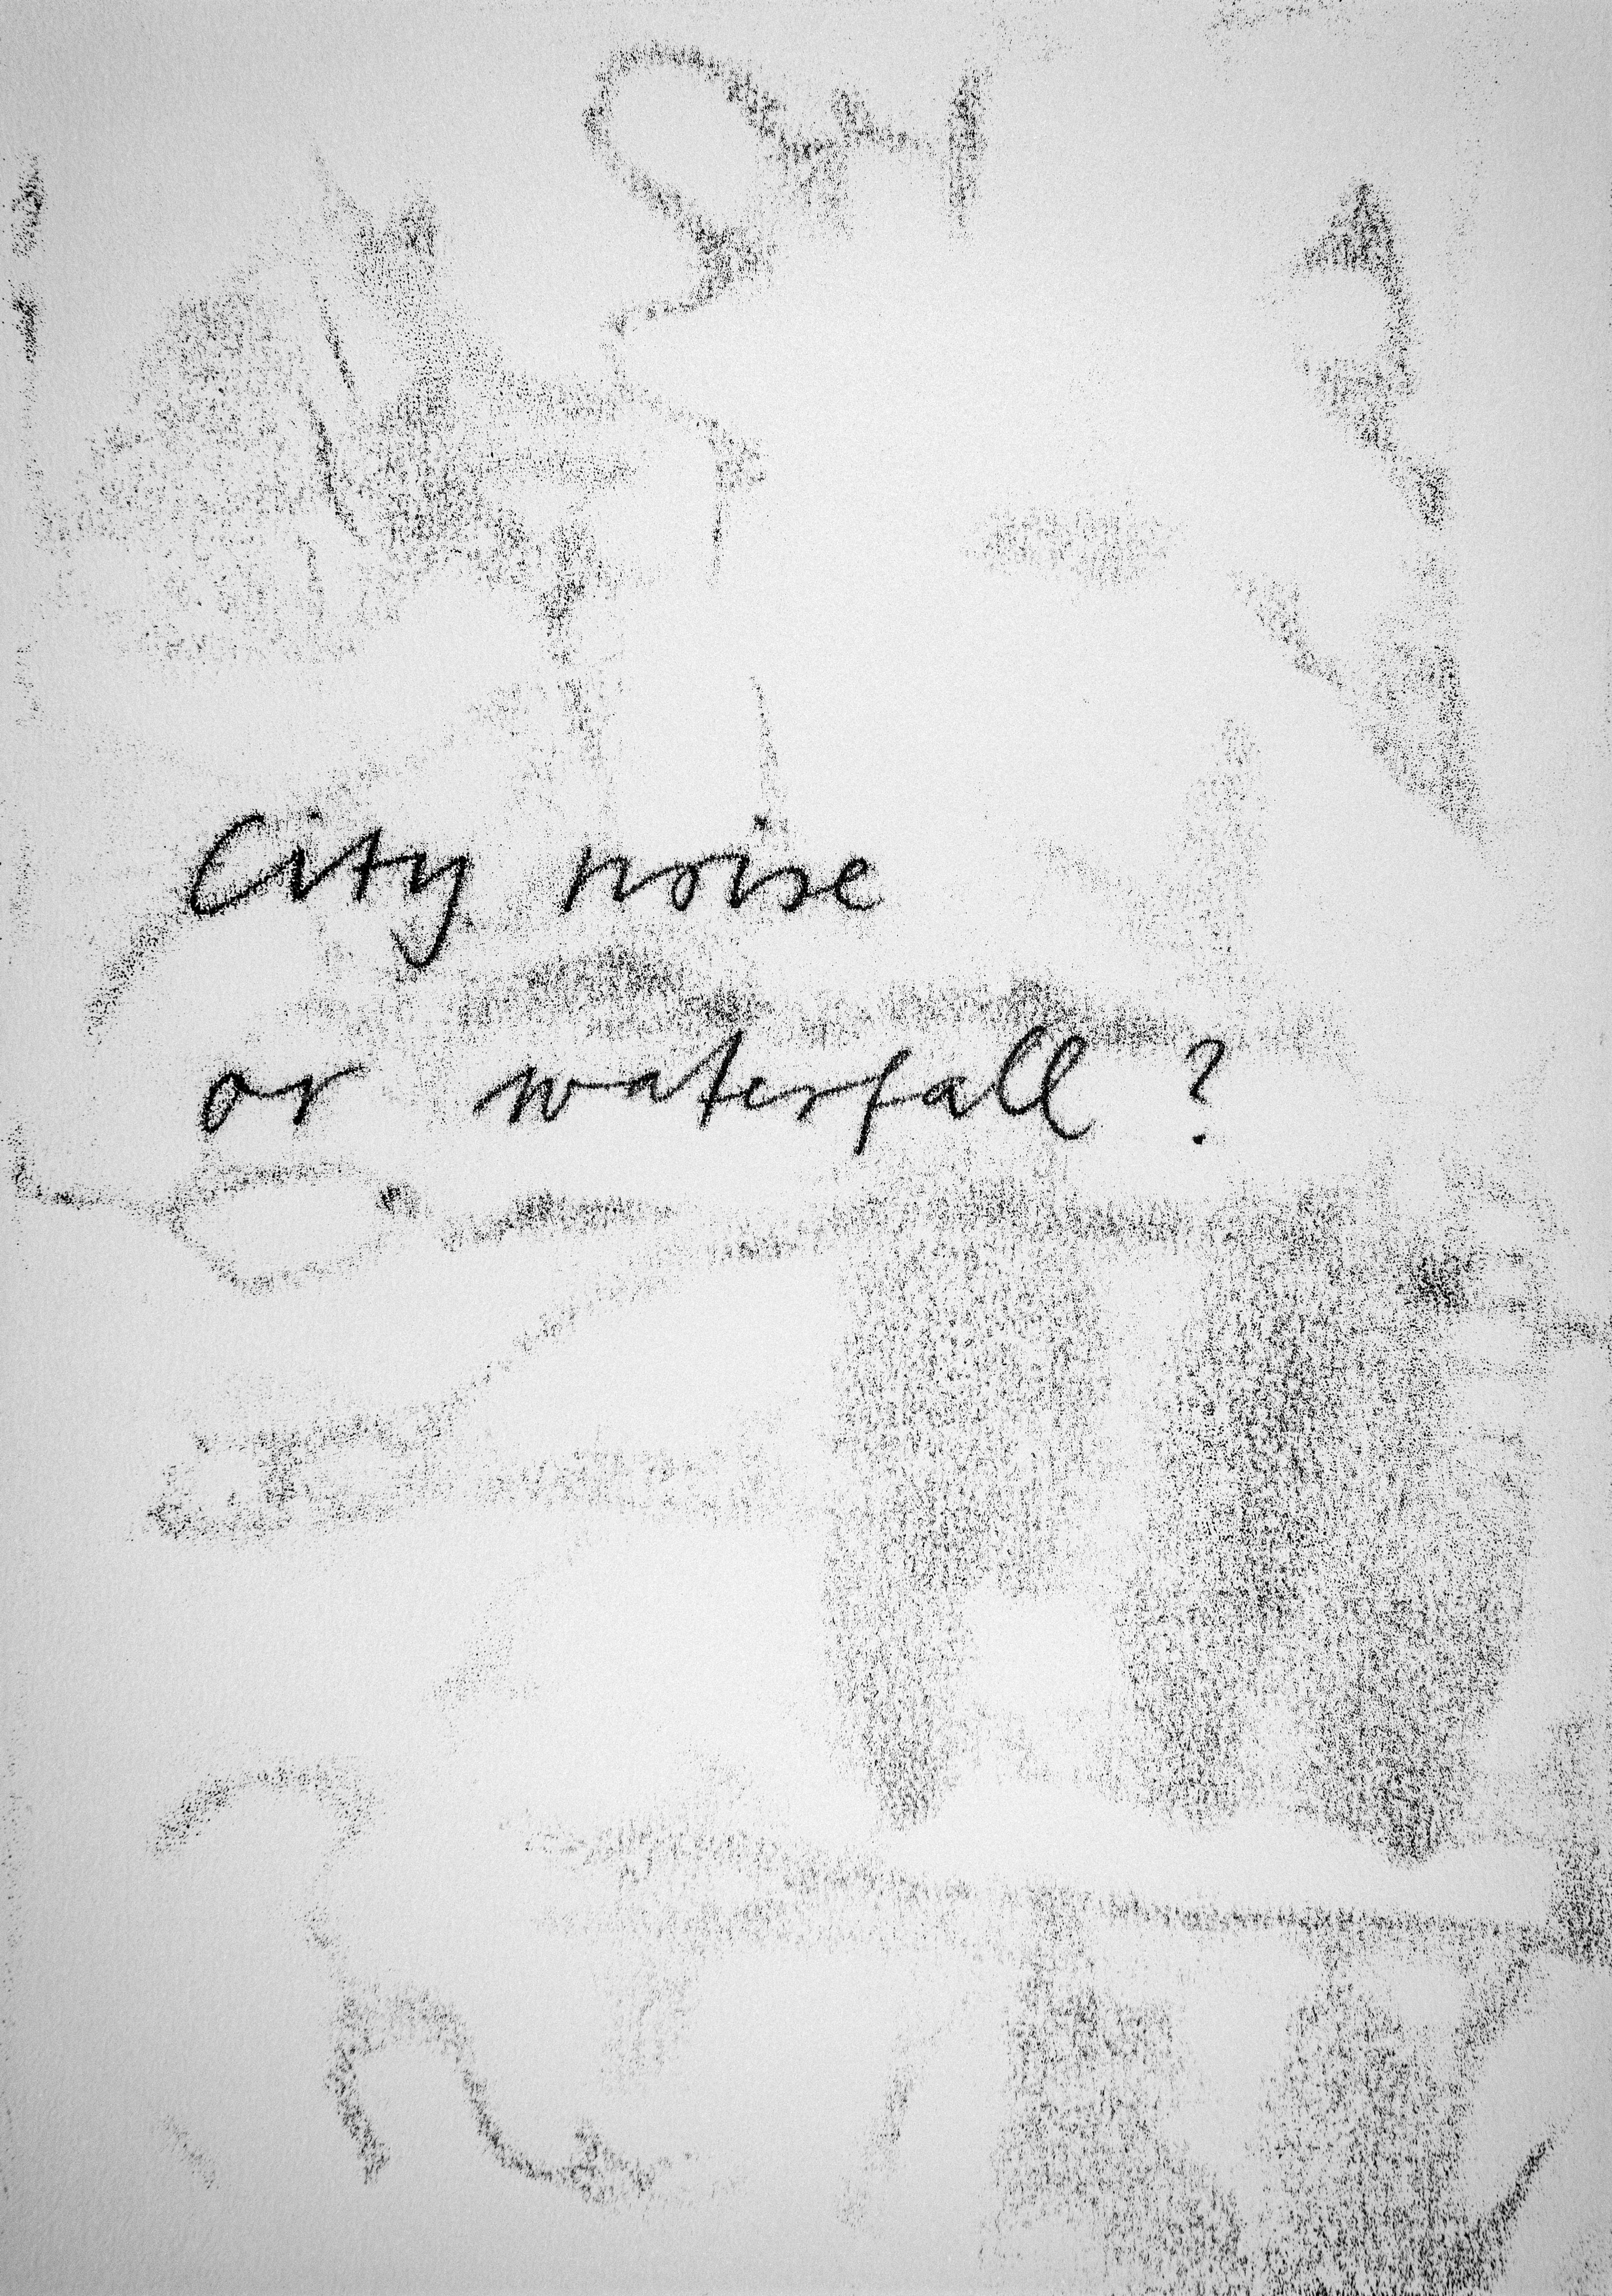 City noise
or waterfall ?